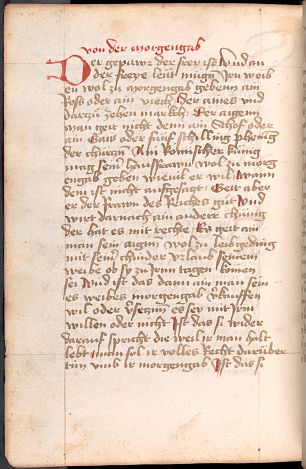 von der morgengab
Der gepawr der frey ist Und an
der freye leut mugn Irn weib
en wol zu morgengab gebenn ain
Ross oder ain viech Der aines vnd
darzu zehen markch Der aigenn
man geit nicht denn ain Schof oder
ain Gaiss oder funf schilling phening
der churczn Ain Romischer kunig
mag seinr hausfrawn wol zu morg
engab geben wieuil er wil Wann
dem ist nicht aufgesaczt Geit aber
er der frawn des Reiches gut Und
wirt darnach ain anderr chunig
der hat es mit rechte Es geit ain
man sein aigen wol zu leibgeding
mit seinr chinder vrlaub seinem
weibe ob sy zu irnn tagen komen
sei Und ist das dann ain man sein
es weibes morgengab verkauffen
wil oder verseczn es sey mit Irm
willen oder nicht Ist das si wider
darauf spricht die weil ir man halt
lebt man sol ir volles Recht daruber
tun vmb ir morgengab Ist das si